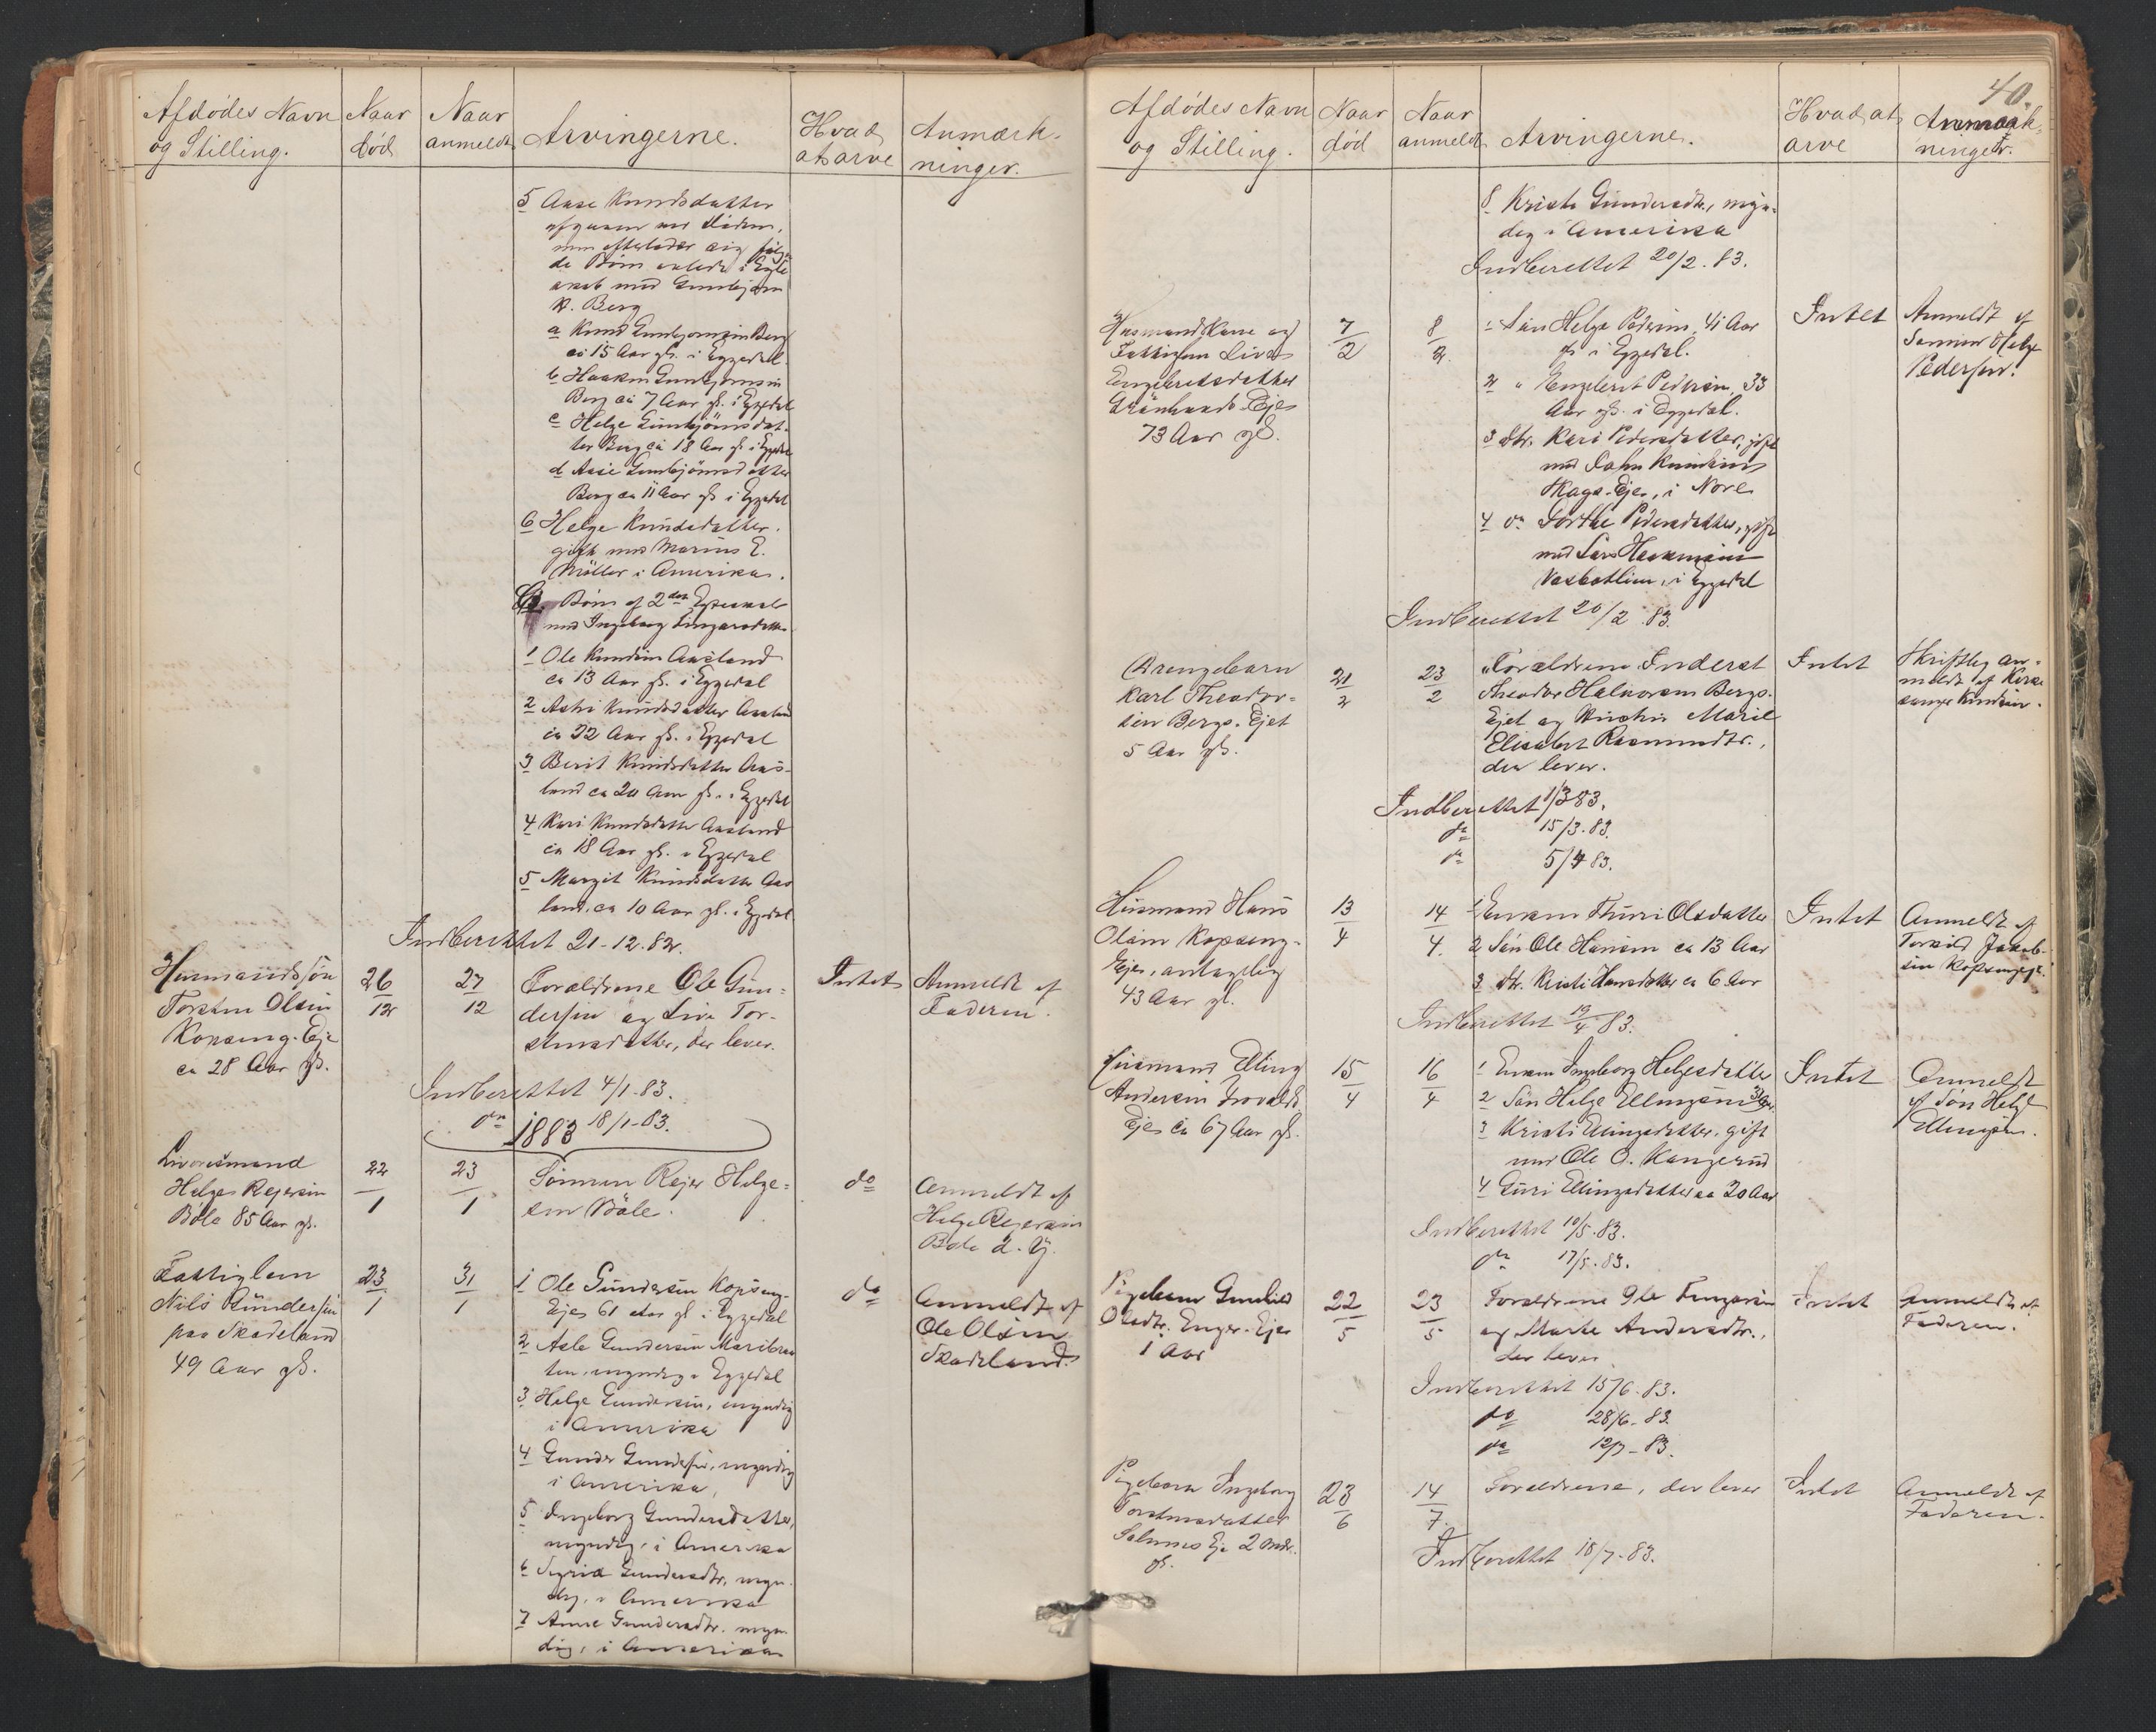 Afdødes Navn
og Stilling.
Naar
død
Naar
anmeldt
Arvingerne.
Hvad
at arve
Anmærk-
ninger.
5 Aase Knudsdatter
afgaaen ved Døden,
men efterlader sig følgen
de Børn avlede i Egte
skab med Gunbjørn
K. Berg
a Knud Gunbjørnsen Berg
ca 15 Aar gl. i Eggedal.
b Haakon Gunbjørnsen
Berg ca 7 Aar gl. i Eggedal
c Helge Gunbjörnsdat-
ter Berg ca 18 Aar gl. i Eggedal
d Aase Gunbjörnsdatter
Berg ca 11 Aar gl. i Eggedal
6 Helge Knudsdatter.
gift med Marius E.
Möller i Amerika.
Børn af 2det Egteskab
med Ingeborg
1 Ole Knudsen Aasland
ca 13 Aar gl. i Eggedal
2 Astri Knudsdatter Aasland
ca 22 Aar gl. i Eggedal
3 Berit Knudsdatter Aas-
land ca 20 Aar gl. i Eggedal
4 Kari Knudsdatter Aasland
ca 18 Aar gl. i Eggedal
5 Margit Knudsdatter Aas
land, ca 10 Aar gl. i Eggedal
Indberettet 21-12.82.
Husmandssøn
Torsten Olsen
Kopseng. Eje
ca 28 Aar gl.
26/12
27/12
Forældrene Ole Gun-
dersen og Live Tor-
stensdatter, der lever.
Intet
Anmeldt af
Faderen.
Indberettet 4/1-83.
do 18/1-83.
1883
Livøresmand
Helge Rejersen
Bøle 85 Aar gl.
22/1
23/1
Sønnen Rejer Helge-
sen Bøle.
do
Anmeldt af
Helge Rejersen
Bøle d. y.
Fattiglem
Nils Gundersen
paa Skadeland
49 Aar gl.
23/1
31/1
1 Ole Gundersen Kopseng-
Ejes 61 Aar gl i Eggedal
2 Asle Gundersen Maribraa
ten, myndig i Eggedal
3 Helge Gundersen, myndig
i Amerika
4 Gunder Gundersen, myndig
i Amerika,
5 Ingeborg Gundersdatter,
myndig, i Amerika
6 Sigrid Gundersdtr, myn-
dig, i Amerika
7 Anne Gundersdtr. myn
dig, i Amerika
do
Anmeldt af
Ole Olsen
Skadeland.
40.
Afdødes Navn
og Stilling.
Naar
død
Naar
anmeldt
Arvingerne.
Hvad at
arve
Anmærk-
ninger.
8 Kristi Gundersdtr., myn-
dig i Amerika
Indberettet 20/2.83.
Husmandskone og
Fattiglem Live
Engebretsdatter
Ejes
73 Aar gl.
7/2
8/2.
1 Søn Helge Pedersen, 41 Aar
gl. i Eggedal.
2 " Engebret Pedersen, 33
Aar gl. i Eggedal.
3 Dtr. Kari Pedersdatter, gift
med John Knudsen
Skags-Eje, i Nore
4 do Dorthe Pedersdatter, gift
med Lars
i Eggedal
Intet
Anmeldt af
Sønnen Helge
Pedersen.
Indberettet 20/2.83.
Drengebarn
Karl Theodor-
sen Bergs. Ejet
5 Aar gl.
21/2
23/2
Forældrene Inderst
Theodor Halvorsen Bergs-
Ejet og Hustru Marie
Elisabet Rasmusdtr.,
der lever.
Intet
Skriftlig an-
meldt af Kirke
sanger Knudsen.
Indberettet 1/3 83.
do 15/3.83.
do 5/4 83.
Husmand Hans
Olsen Kopseng-
Ejes, antagelig
43 Aar gl.
13/4
14/4.
1 Enken Thuri Olsdatter
2 Søn Ole Hansen ca 13 Aar
3 Dtr. Kristi Hansdatter ca 6 Aar
Intet
Anmeldt af
Torkild Jakob-
sen Kopsengeje.
Indberettet 19/4 83.
Husmand Elling
Andersen
Ejes ca 67 Aar gl.
15/4
16/4
1 Enken Ingeborg Helgesdatter
2 Søn Helge Ellingsen
3 Kristi Ellingsdatter, gift
med Ole O. Kangerud
4 Guri Ellingsdatter ca 20 Aar
Intet
Anmeldt
af Søn Helge
Ellingsen.
Indberettet 10/5.83.
do 17/5.83.
Pigebarn Gunhild
Olsdtr. Enger-Ejer
1 Aar
22/5
23/5
Forældrene Ole
og Marte Andersdtr.,
der lever
Intet
Anmeldt af
Faderen.
Indberettet 15/6.83.
do 28/6-83.
do 12/7-83.
Pigebarn Ingeborg
Torstensdatter
Eje 2 Mdr.
gl.
28/6
14/7.
Forældrene, der lever
Intet
Anmeldt af
Faderen.
Indberettet 18/7.83.